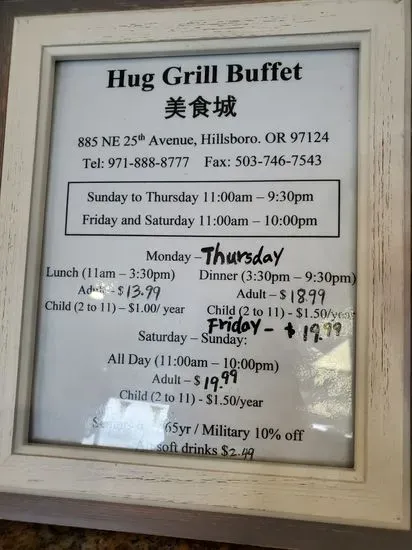 Hug Grill Buffet
美食城
885 NE 25th Avenue, Hillsboro. OR 97124
Tel: 971-888-8777 Fax: 503-746-7543
Sunday to Thursday 11:00am – 9:30pm
Friday and Saturday 11:00am – 10:00pm
Monday – Thursday
Lunch (11am – 3:30pm) Dinner (3:30pm – 9:30pm)
Adult – $ 13.99 Adult – $ 18.99
Child (2 to 11) – $1.00/ year Child (2 to 11) - $1.50/year
Friday – $ 19.99
Saturday – Sunday:
All Day (11:00am – 10:00pm)
Adult – $ 19.99
Child (2 to 11) - $1.50/year
65yr / Military 10% off
soft drinks $2.49